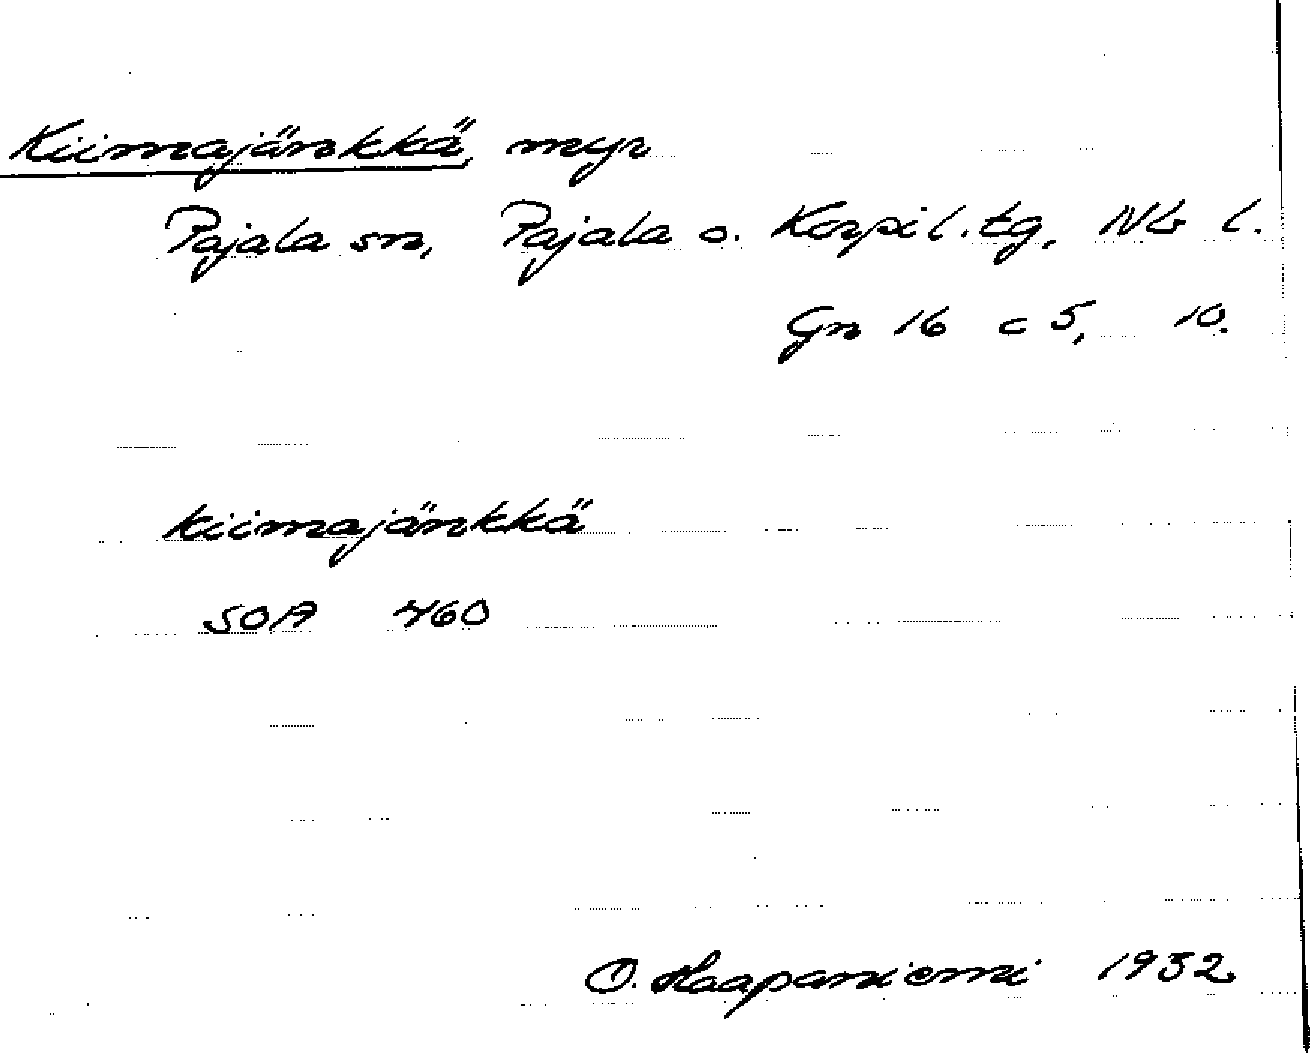 Kiimajänkkä, myr
Pajala sn, Pajala o. Korpil. tg, Nb l.
Gn 16 c 5, 10.
kiimajänkkä
SOA 460
O. Haapaniemi 1932